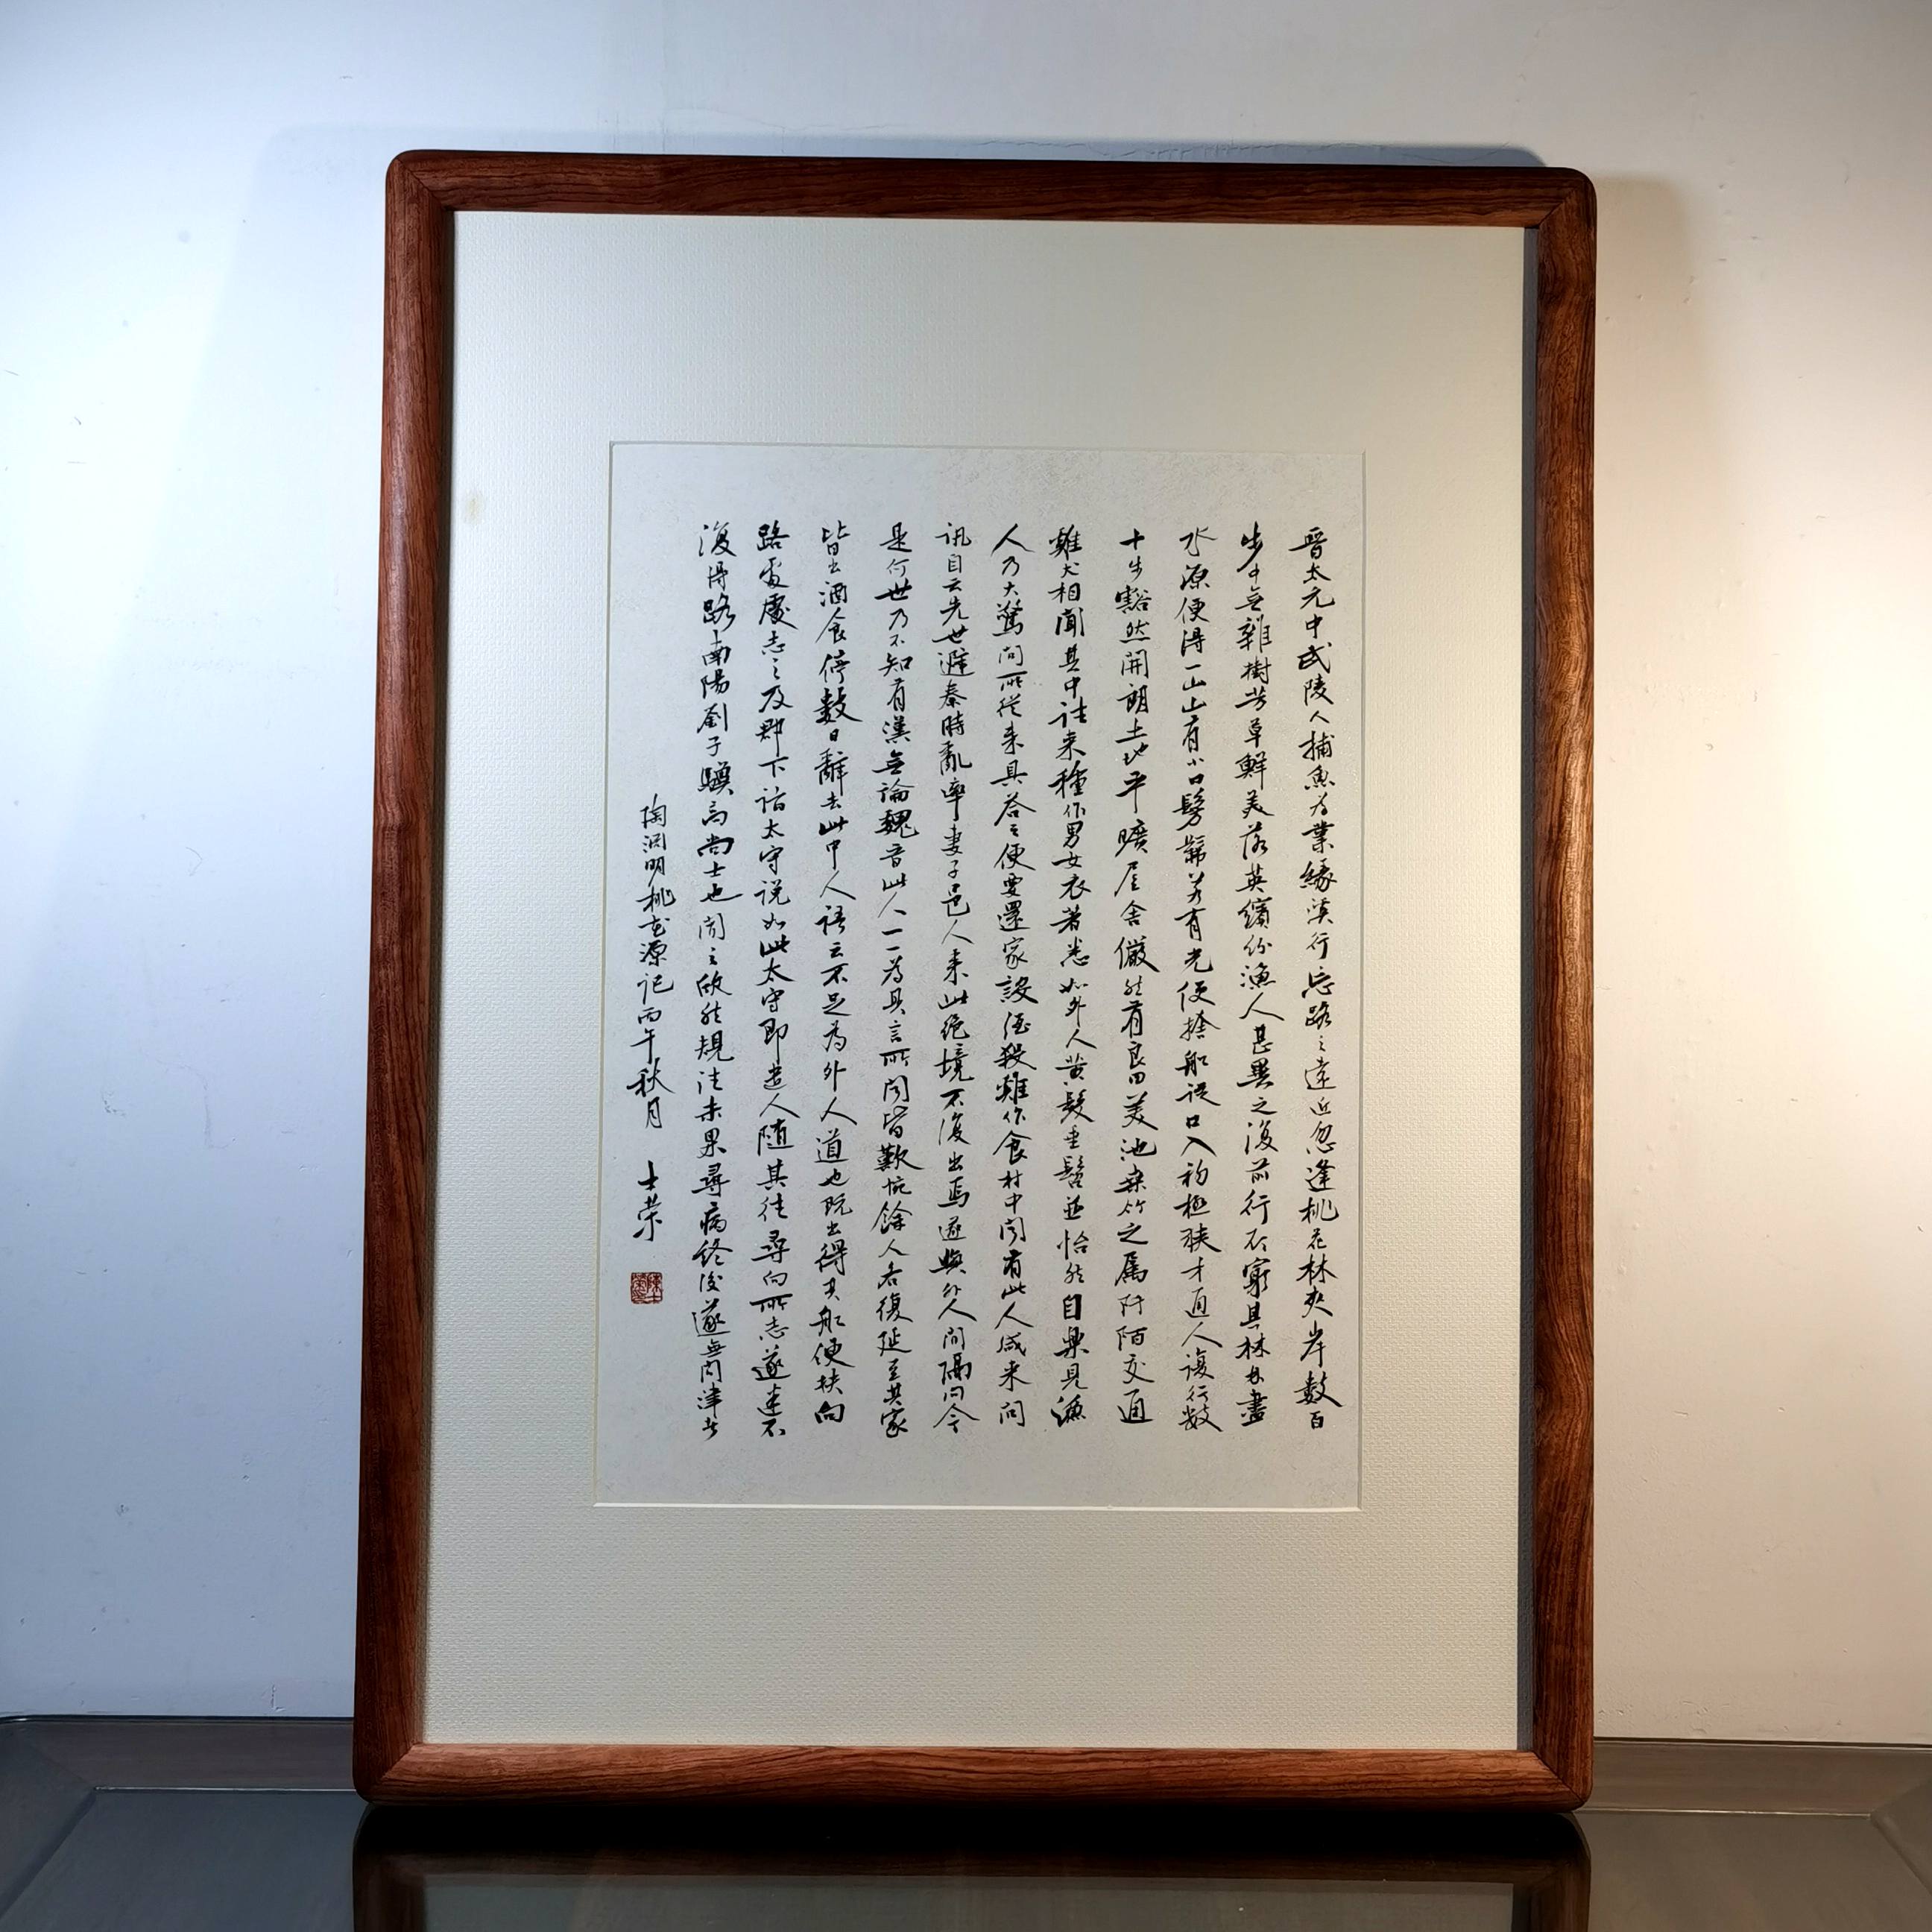 晉太元中武陵人捕魚為業緣溪行忘路之遠近忽逢桃花林夾岸數百
步中無雜樹芳草鮮美落英繽紛漁人甚異之復前行欲窮其林林盡
水源便得一山山有小口髣髴若有光便捨船從口入初極狹才通人復行數
十步豁然開朗土地平曠屋舍儼然有良田美池桑竹之屬阡陌交通
雞犬相聞其中往來種作男女衣著悉如外人黃髮垂髫並怡然自樂見漁
人乃大驚問所從來具答之便要還家設酒殺雞作食村中聞有此人咸來問
訊自云先世避秦時亂率妻子邑人來此絕境不復出焉遂與外人間隔問今
是何世乃不知有漢無論魏晉此人一一為具言所聞皆歎惋餘人各復延至其家
皆出酒食停數日辭去此中人語云不足為外人道也既出得其船便扶向
路處處志之及郡下詣太守說如此太守即遣人隨其往尋向所志遂迷不
復得路南陽劉子驥高尚士也聞之欣然規往未果尋病終後遂無問津者
陶淵明桃花源記丙午秋月 士榮